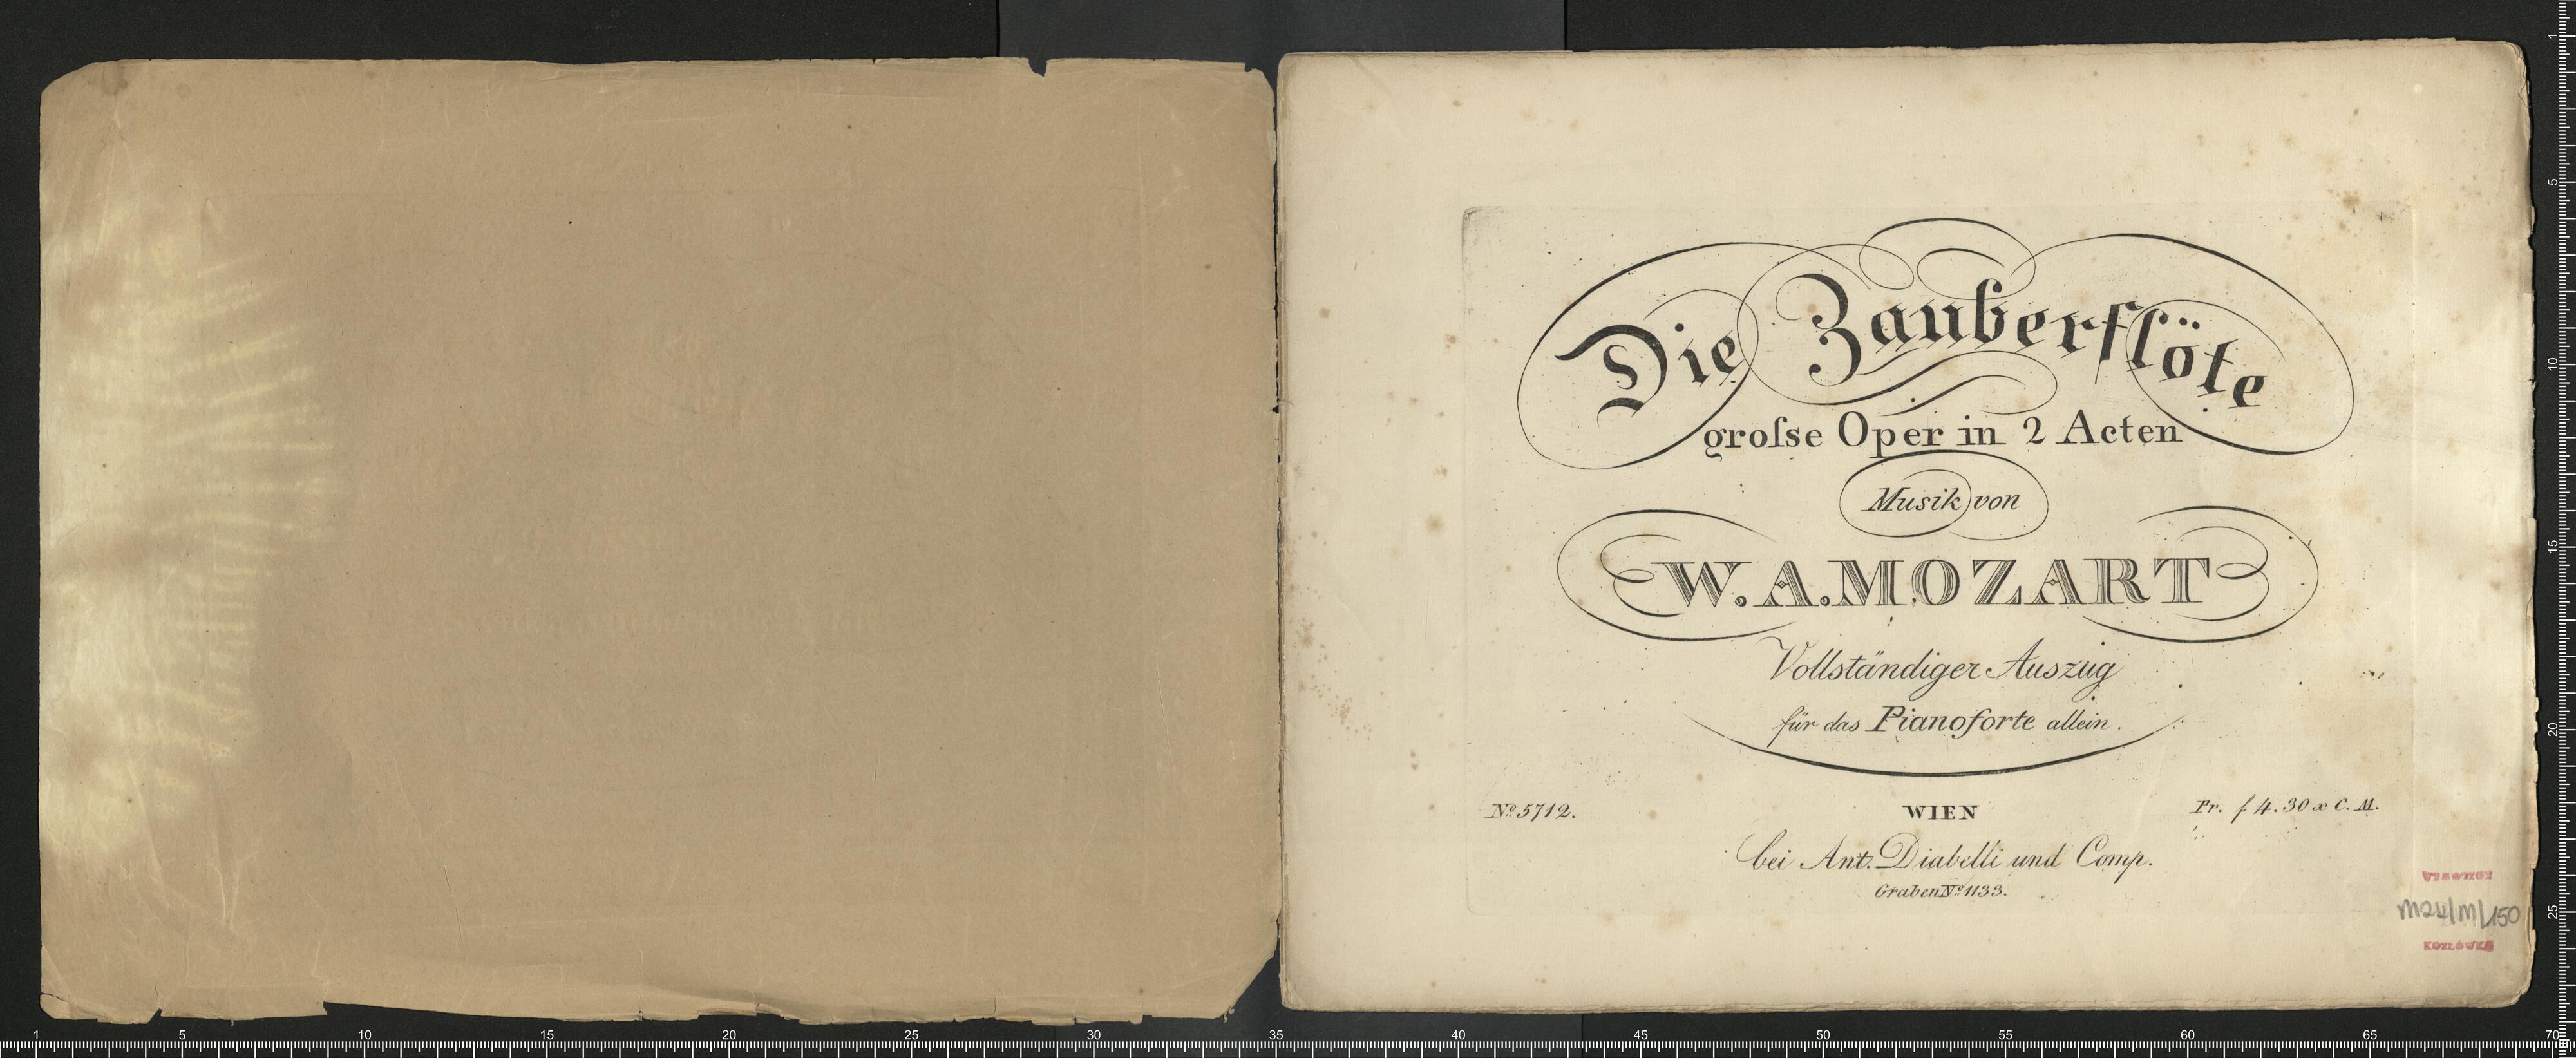 Die Zauberflöte
groſse Oper in 2 Acten
Musik von
W. A. MOZART
Vollständiger Auszug
für das Pianoforte allein.
No. 5712.
WIEN
Pr. f 4. 30 x C. M.
bei Ant. Diabelli und Comp.
Graben No. 1133.
KOZŁÓWKA
1 5 10 15 20 25 30 35 40 45 50 55 60 65 70
1 5 10 15 20 25